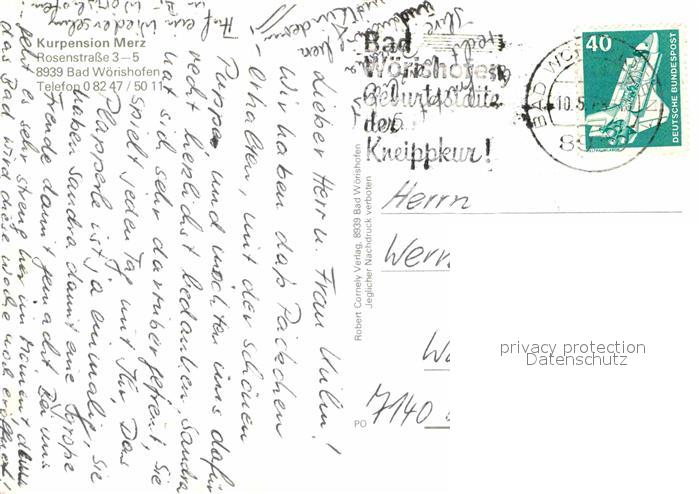 Kurpension Merz
Rosenstraße 3–5
8939 Bad Wörishofen
Telefon 0 82 47 / 50 11
Lieber Herr u. Frau
Wir haben das Päckchen
erhalten, mit der schönen
Puppe, und möchten uns dafür
recht herzlichst bedanken, Sandra
hat sich sehr darüber gefreut, Sie
spielt jeden Tag mit Ihr. Das
ist ja einmalig, Sie
haben Sandra damit eine Große
Freude damit gemacht. Bei uns
geht es sehr streng her im Moment denn
das Bad wird diese Woche noch eröffnet!
Auf ein Wiedersehen
in B. Wörishofen
Robert Cornely Verlag, 8939 Bad Wörishofen
Jeglicher Nachdruck verboten
Bad
Wörishofen
Geburtsstätte
der
Kneippkur!
BAD WÖRI
10.5.
89
40
DEUTSCHE BUNDESPOST
WELTRAUMLABOR
Herrn
Wern
W
PO
7140
privacy protection
Datenschutz